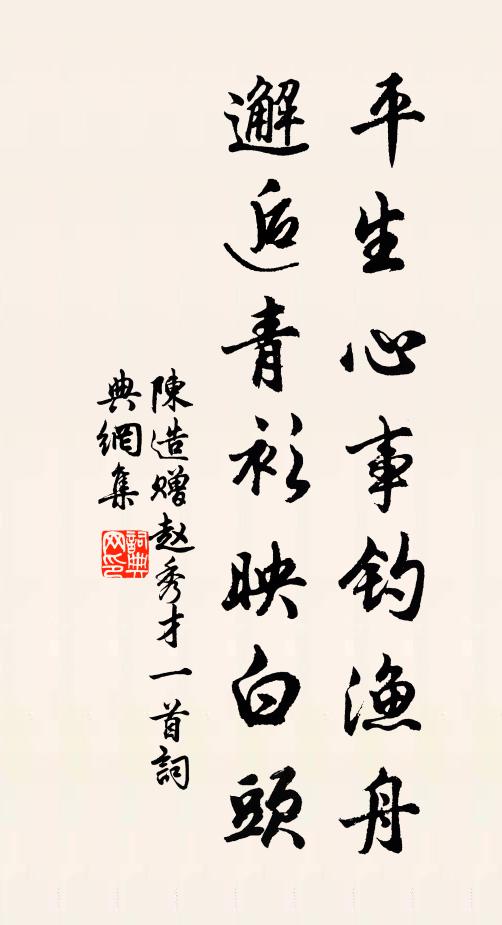 平生心事钓渔舟
邂逅青衫映白頭
陳造赠赵秀才一首詞
典網集
詞典网印